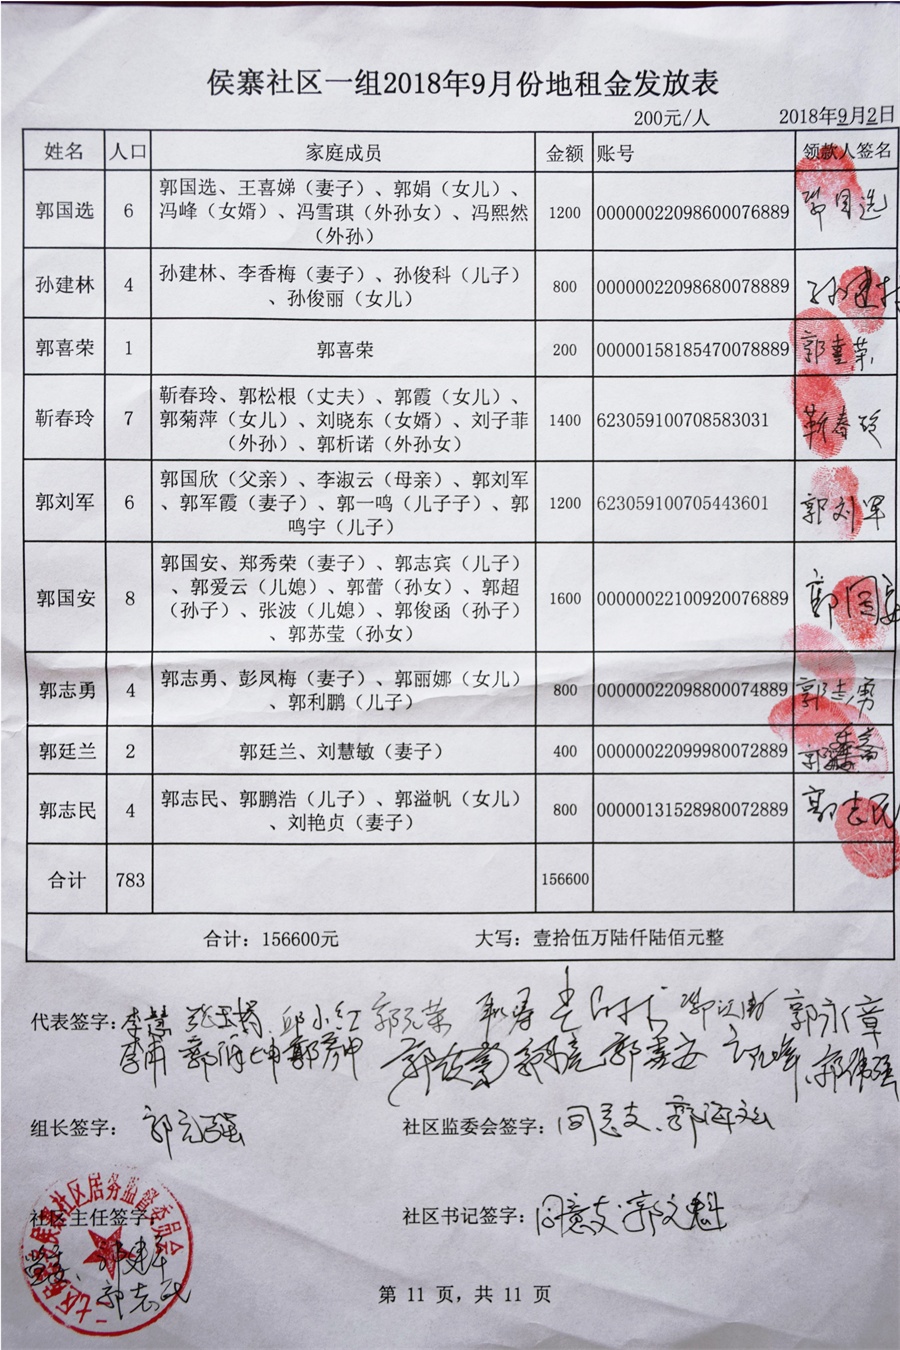 侯寨社区一组2018年9月份地租金发放表
200元/人 2018年9月2日
姓名 人口 家庭成员 金额 账号 领款人签名
郭国选 6 郭国选、王喜娣（妻子）、郭娟（女儿）、
冯峰（女婿）、冯雪琪（外孙女）、冯熙然
（外孙） 1200 00000022098600076889 郭国选
孙建林 4 孙建林、李香梅（妻子）、孙俊科（儿子）
、孙俊丽（女儿） 800 00000022098680078889 孙建林
郭喜荣 1 郭喜荣 200 00000158185470078889 郭喜荣
靳春玲 7 靳春玲、郭松根（丈夫）、郭霞（女儿）、
郭菊萍（女儿）、刘晓东（女婿）、刘子菲
（外孙）、郭析诺（外孙女） 1400 623059100708583031 靳春玲
郭刘军 6 郭国欣（父亲）、李淑云（母亲）、郭刘军
、郭军霞（妻子）、郭一鸣（儿子子）、郭
鸣宇（儿子） 1200 623059100705443601 郭刘军
郭国安 8 郭国安、郑秀荣（妻子）、郭志宾（儿子）
、郭爱云（儿媳）、郭蕾（孙女）、郭超
（孙子）、张波（儿媳）、郭俊函（孙子）
、郭苏莹（孙女） 1600 00000022100920076889 郭国安
郭志勇 4 郭志勇、彭凤梅（妻子）、郭丽娜（女儿）
、郭利鹏（儿子） 800 00000022098800074889 郭志勇
郭廷兰 2 郭廷兰、刘慧敏（妻子） 400 00000022099980072889
郭志民 4 郭志民、郭鹏浩（儿子）、郭溢帆（女儿）
、刘艳贞（妻子） 800 00000131528980072889 郭志民
合计 783 156600
合计：156600元 大写：壹拾伍万陆仟陆佰元整
代表签字：李慧 邱小红 郭元荣 郭永章
郭伟强
组长签字： 郭元强 社区监委会签字：同意支、郭海
社区主任签字： 社区书记签字：同意支 郭文魁
社区居务监督委员会
郭建军
郭志民
第 11 页，共 11 页